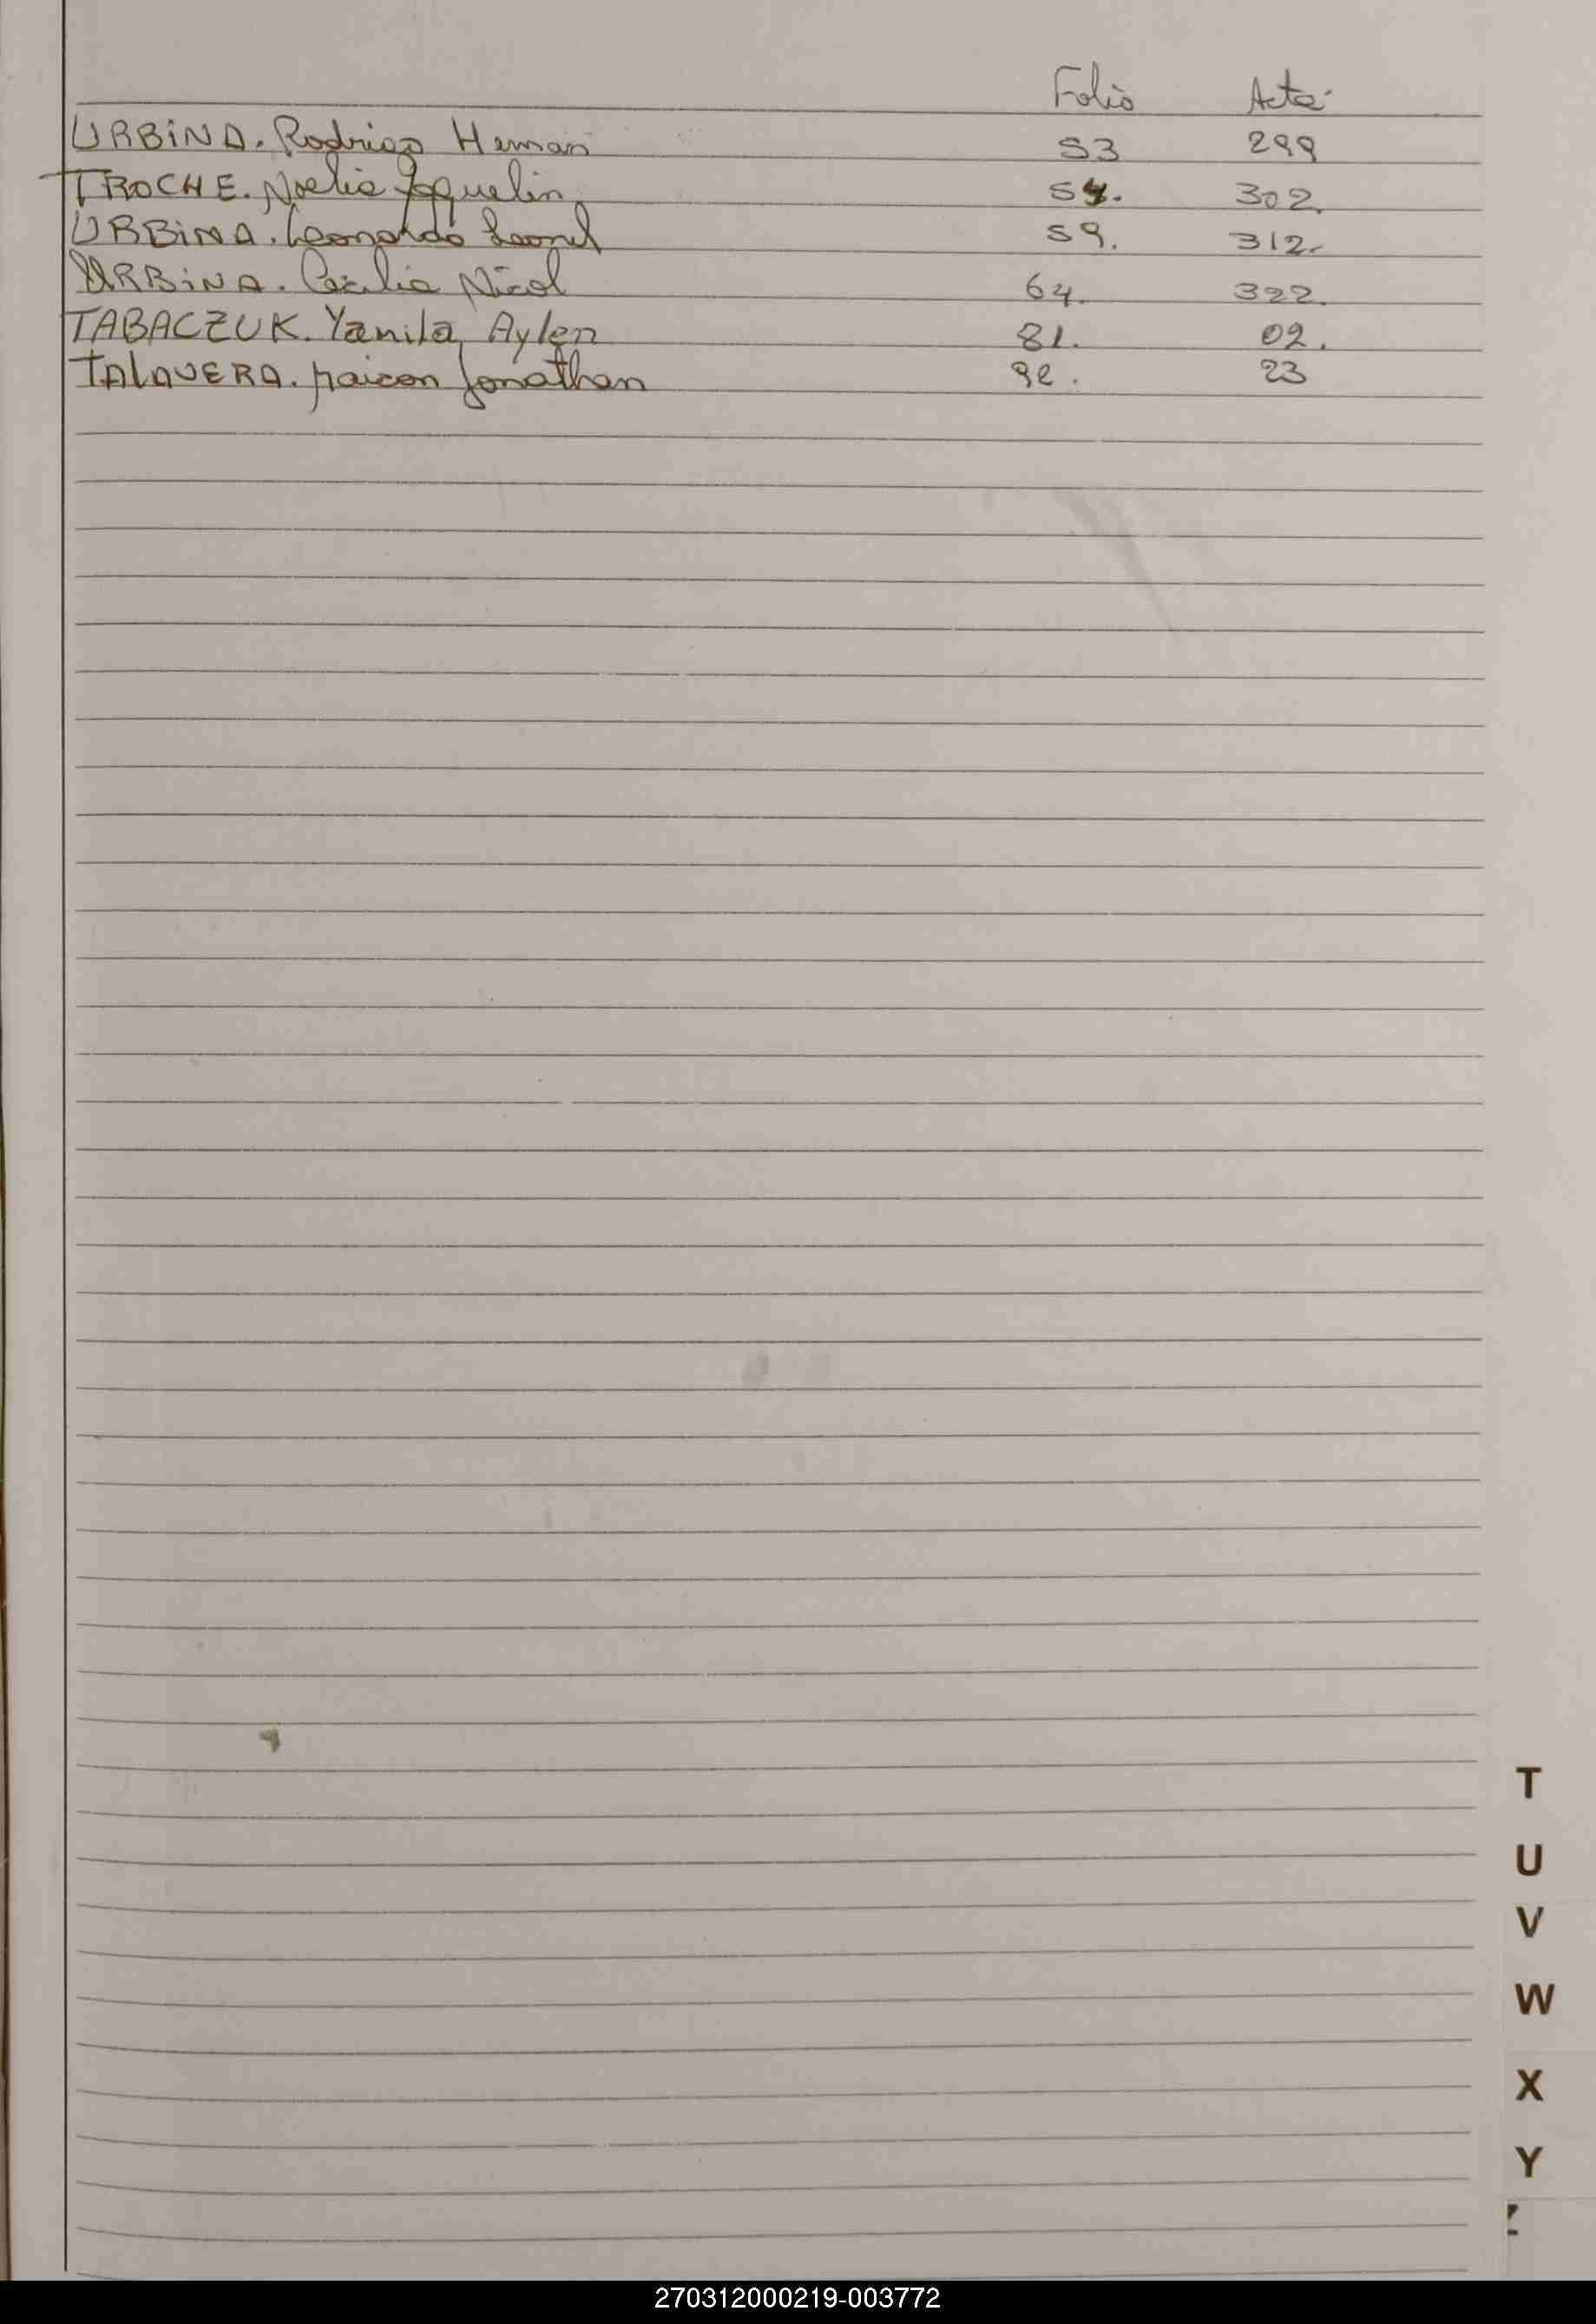 Folio Acta
URBINA. Rodrigo Hernan 53 299
TROCHE. Noelia Joquelin 54. 302.
URBINA. Leonardo Leonel 59. 312.
URBINA. Cecilia Nicol 64. 322.
TABACZUK. Yanila Aylen 81. 02.
TALAVERA. Maicon Jonathan 92. 23
T
U
V
W
X
Y
Z
270312000219-003772